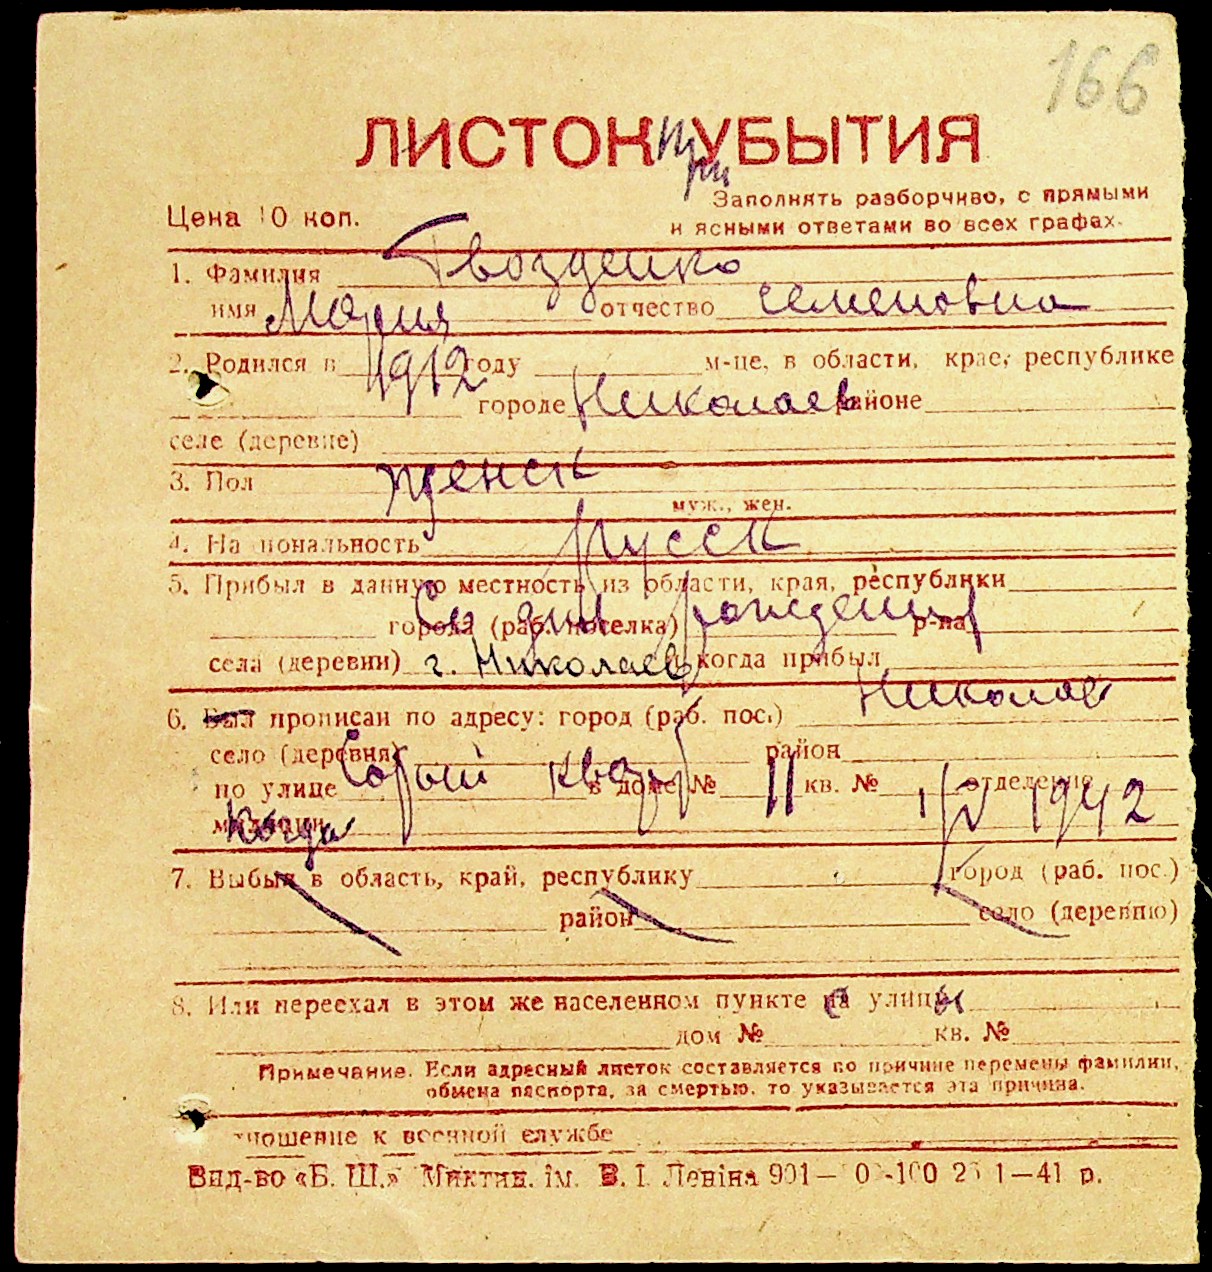 166
ЛИСТОК УБЫТИЯ
при
Заполнять разборчиво, с прямыми
и ясными ответами во всех графах.
Цена 10 коп.
1. Фамилия Гвозденко
имя Мария отчество Семеновна
2. Родился в 1912 году м-це, в области, крае, республике
городе Николаев районе
селе (деревне)
3. Пол женск
муж., жен.
4. Национальность русск
5. Прибыл в данную местность из области, края, республики
Со дня рождения
города (раб. поселка) р-на
села (деревни) г. Николаев когда прибыл
6. Был прописан по адресу: город (раб. пос.) Николаев
село (деревня) район
по улице в доме № 11 кв. № отделение
милиции Когда 1942
7. Выбыл в область, край, республику город (раб. пос.)
район село (деревню)
8. Или переехал в этом же населенном пункте с улицы
дом № кв. №
Примечание. Если адресный листок составляется по причине перемены фамилии,
обмена паспорта, за смертью, то указывается эта причина.
тношение к военной службе
Вид-во «Б. Ш.» ім. В. І. Леніна 901— 1—41 р.